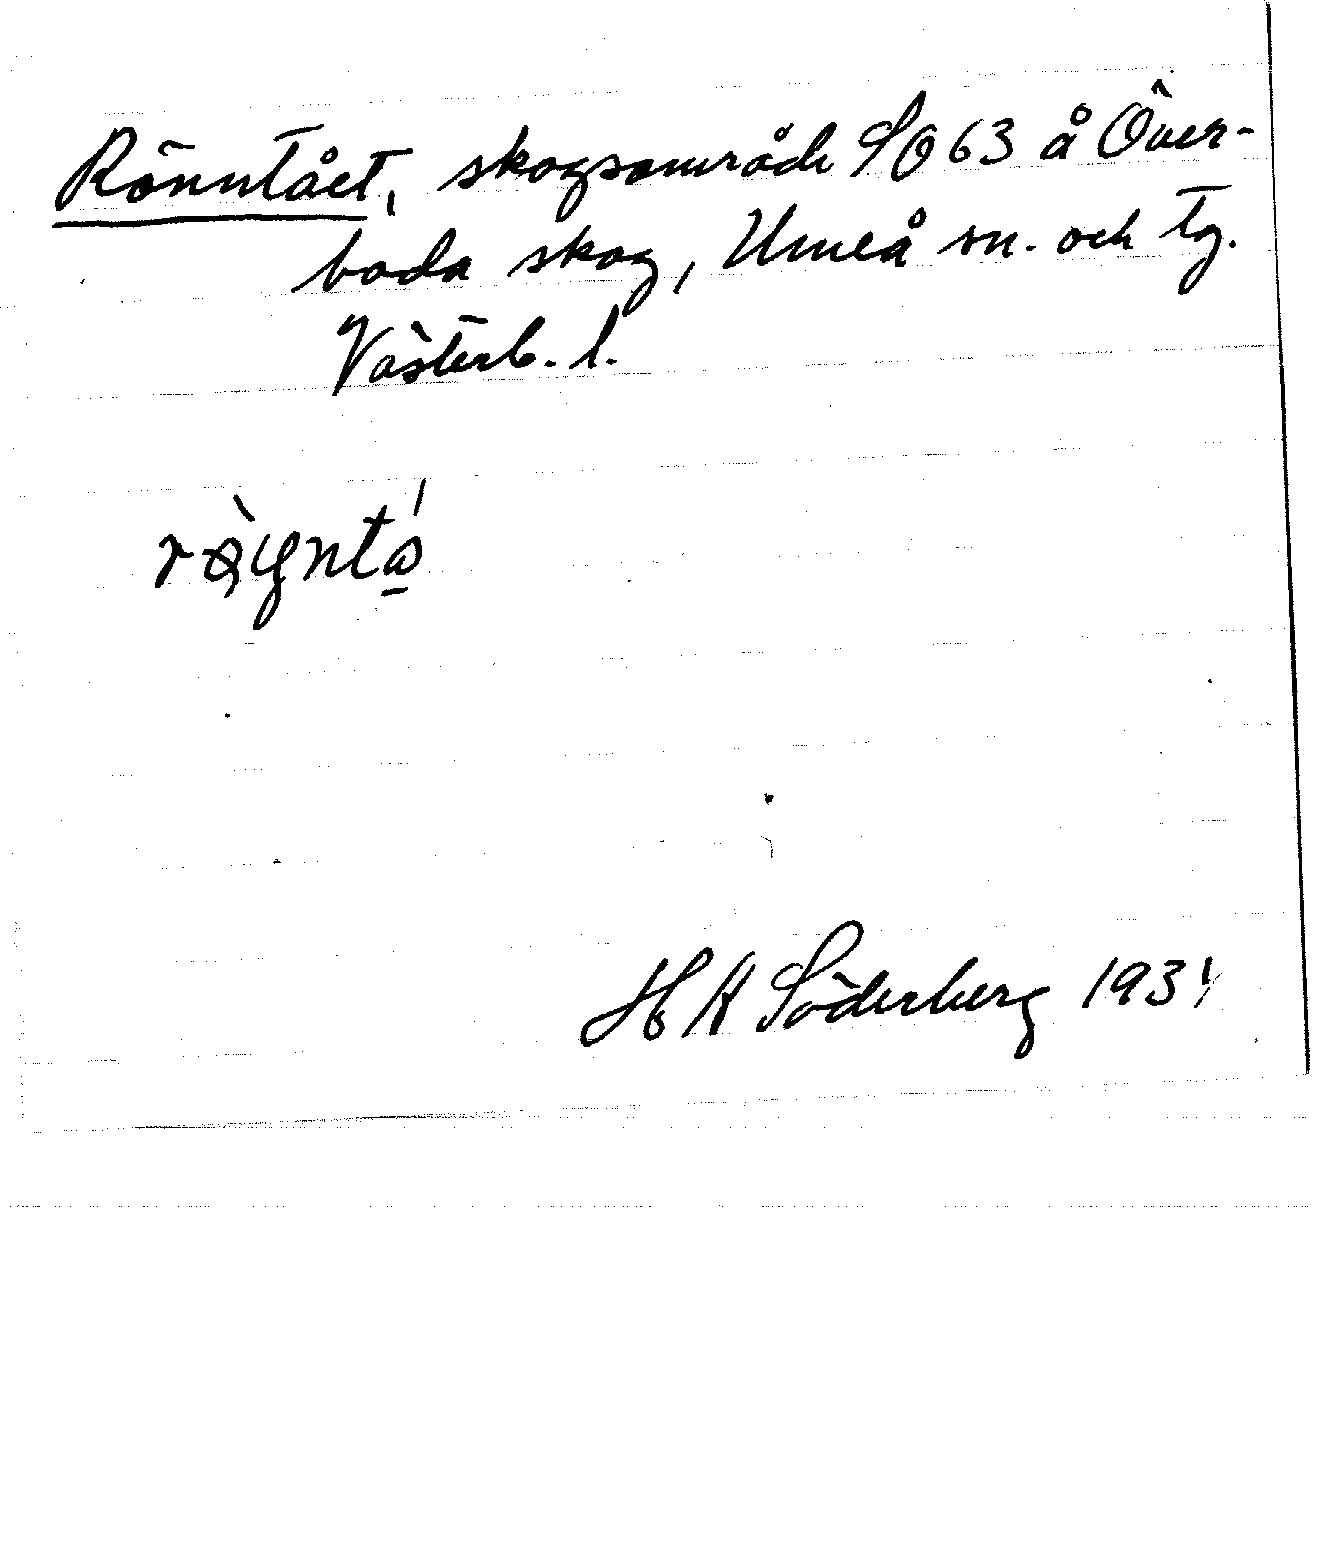 Rönntået, skogsområde SO 63 å Över-
boda skog, Umeå sn. och tg.
Västerb. l.
H A Söderberg 1931